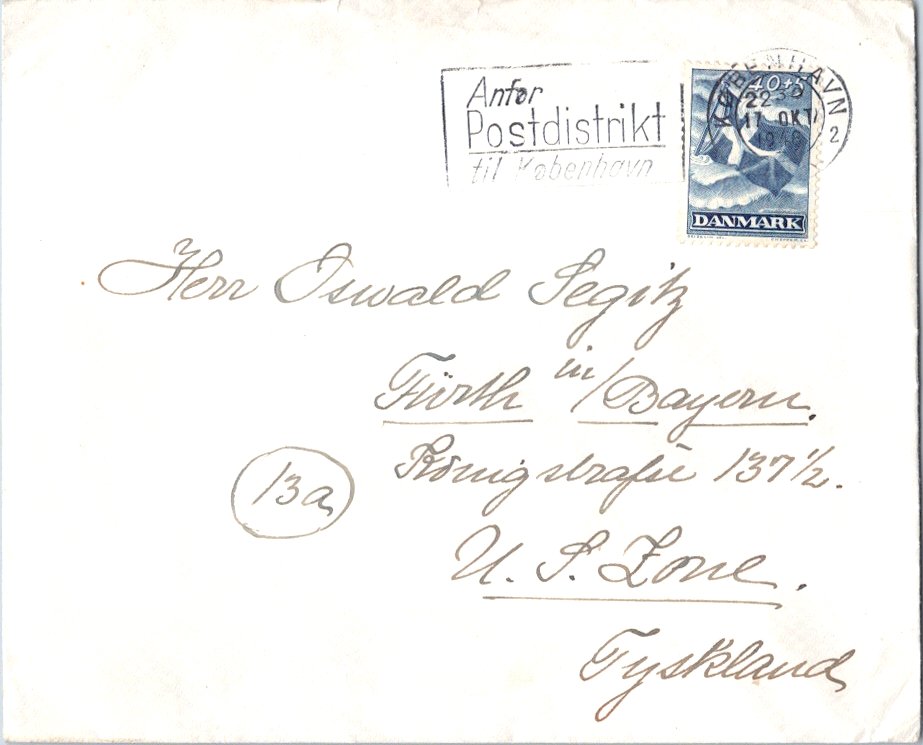 Anfør
Postdistrikt
til København
KØBENHAVN 2
40+5
22
17 OKT
DANMARK
Herr Oswald Segitz
Fürth in/Bayern.
Königstraße 137 1/2.
13a
U. S. Zone.
Tyskland